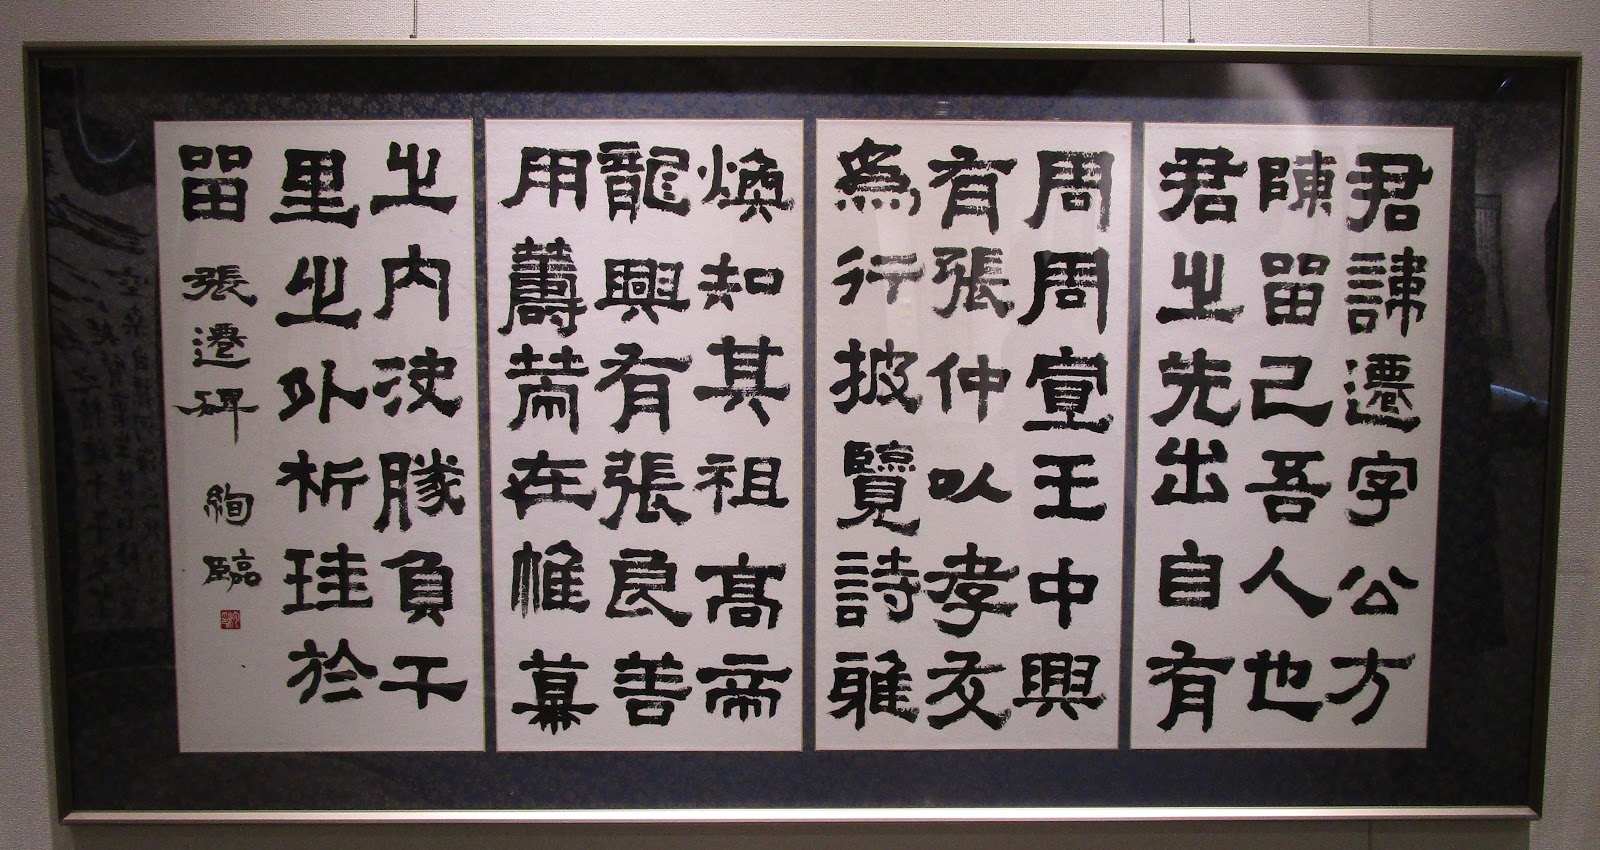 君諱遷字公方
陳留己吾人也
君之先出自有
周周宣王中興
有張仲以孝友
為行披覽詩雅
煥知其祖高帝
龍興有張良善
用籌策在帷幕
之内決勝負千
里之外析珪於
留 張遷碑 絢臨